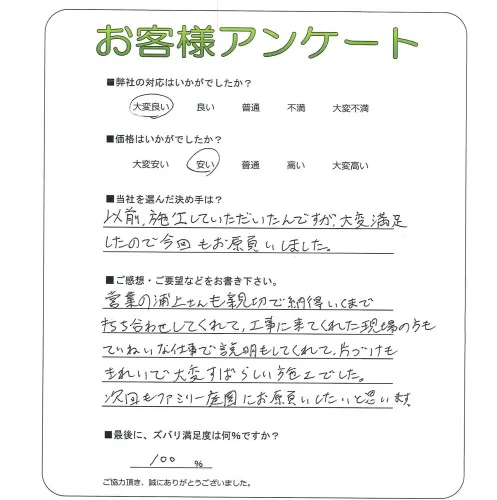 お客様アンケート
■弊社の対応はいかがでしたか？
大変良い 良い 普通 不満 大変不満
■価格はいかがでしたか？
大変安い 安い 普通 高い 大変高い
■当社を選んだ決め手は？
以前、施工していただいたんですが、大変満足
したので今回もお願いしました。
■ご感想・ご要望などをお書き下さい。
営業の浦上さんも親切で納得いくまで
打ち合わせしてくれて、工事に来てくれた現場の方も
ていねいな仕事で説明もしてくれて、片づけも
きれいで大変すばらしい施工でした。
次回もファミリー庭園にお願いしたいと思います。
■最後に、ズバリ満足度は何%ですか？
100 %
ご協力頂き、誠にありがとうございました。